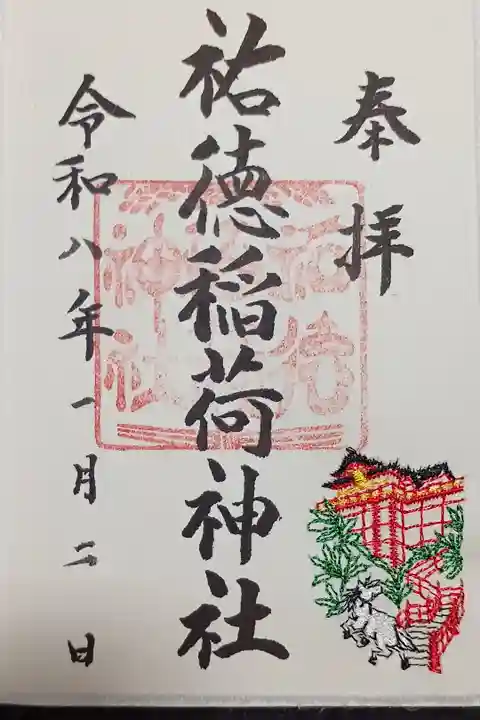 奉拝
祐徳稲荷神社
令和八年一月二日
祐徳
稲荷
神社